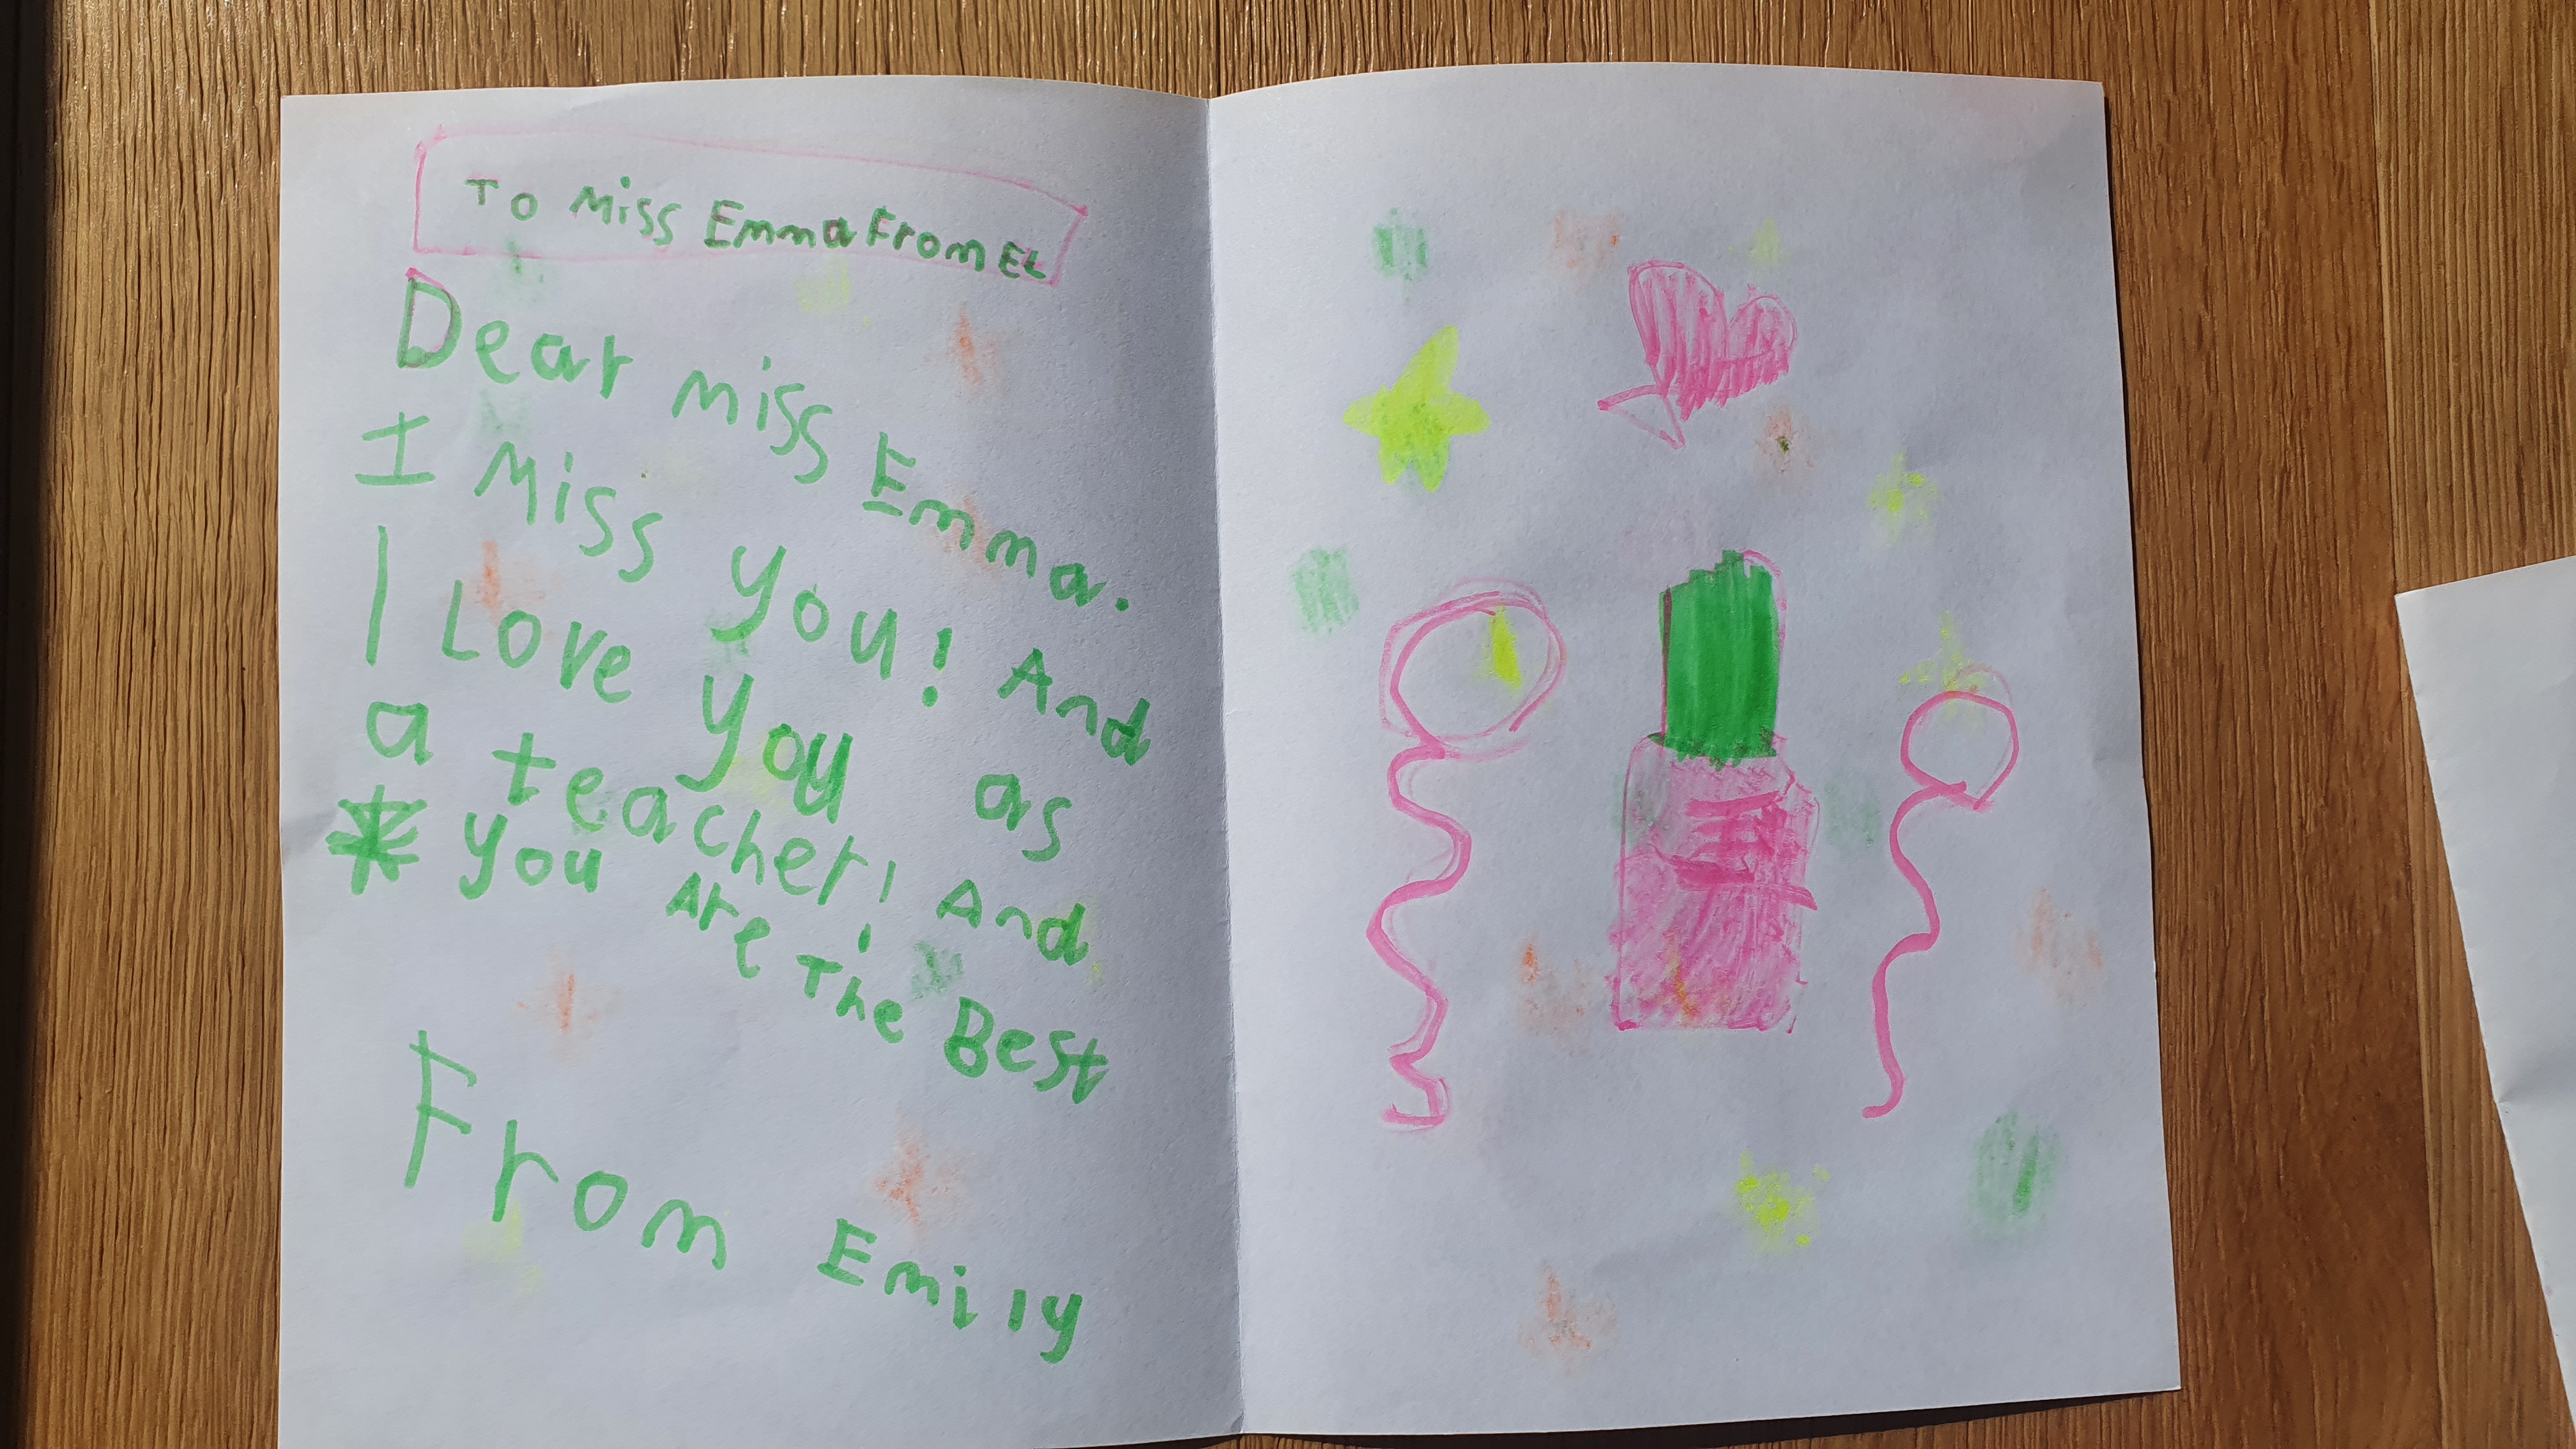 To Miss Emma From EL
Dear miss Emma.
I Miss you! And
I Love you as
a teacher! And
* you Are The Best
From Emily